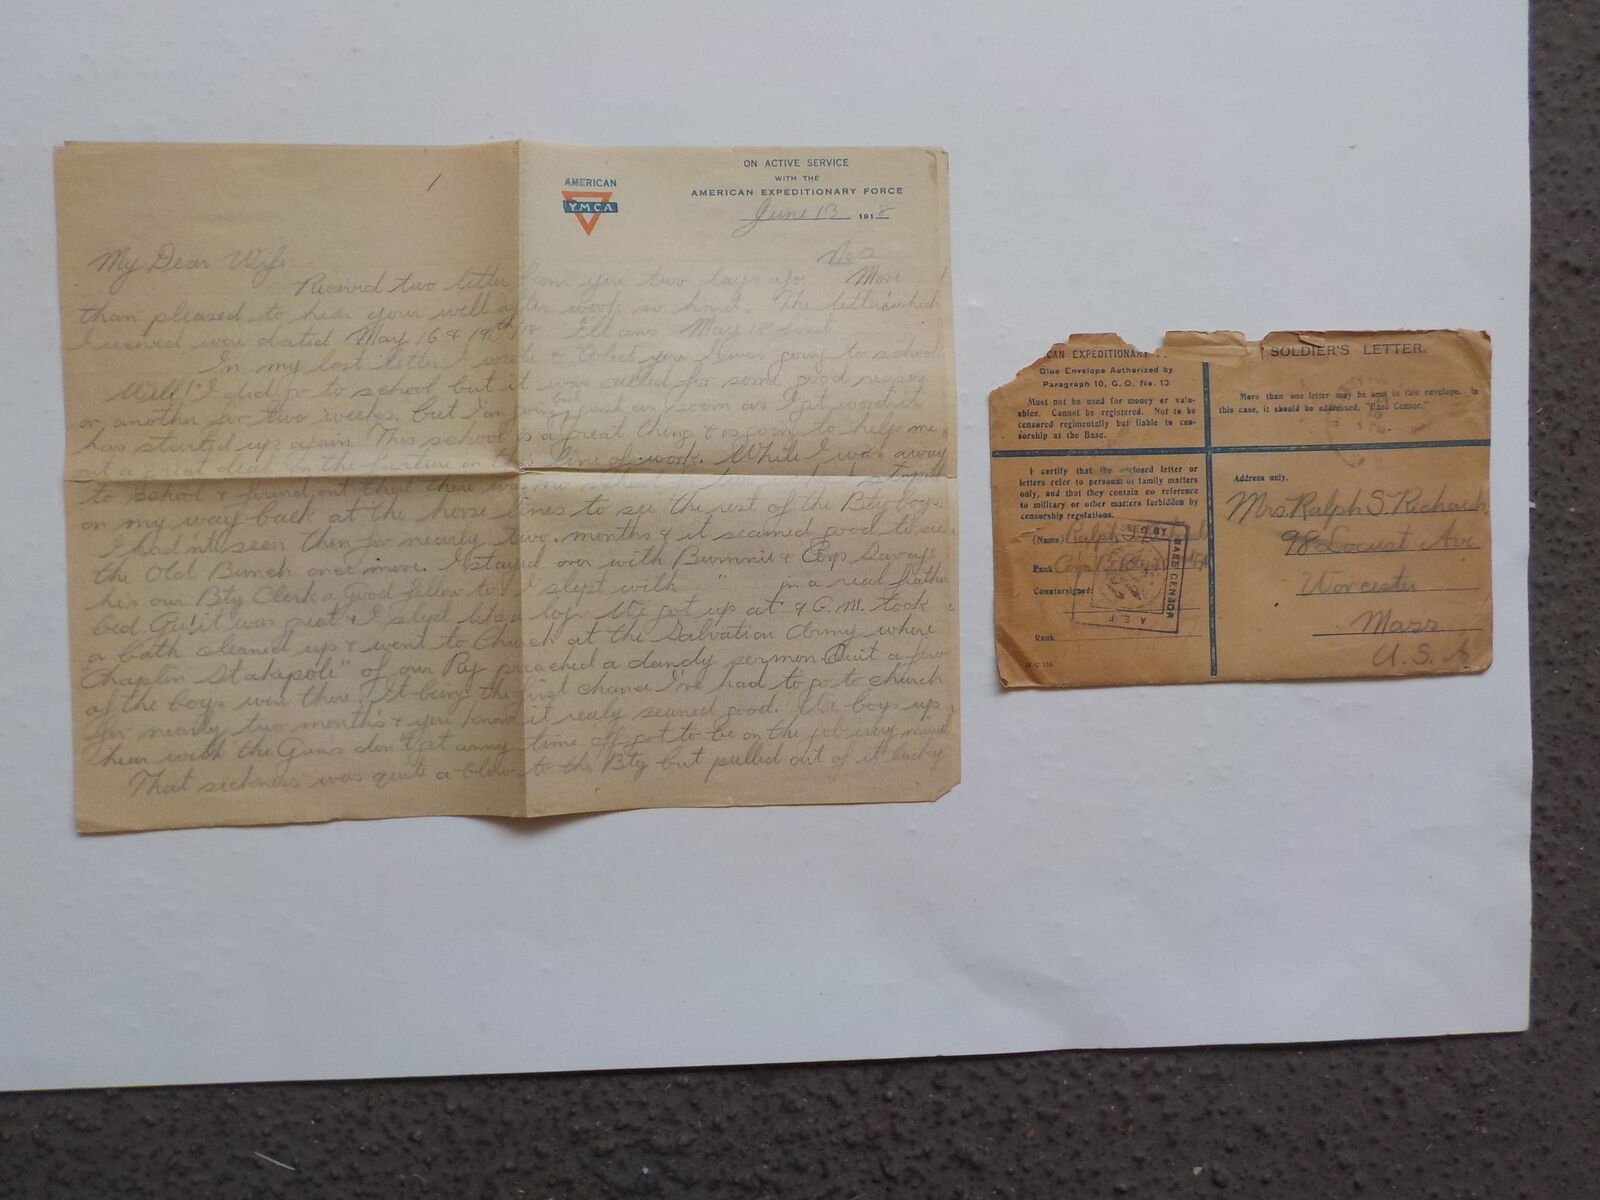 1
AMERICAN
Y.M.C.A.
ON ACTIVE SERVICE
WITH THE
AMERICAN EXPEDITIONARY FORCE
June 13 1918
My Dear Wife
Recievd two letter from you two days ago. More
than pleased to hear your well after work so hard. The letter which
I received were dated May 16 & 19th I'll ans May 18 first.
In my last letter I wrote & tolded you I was going to school.
Well! I did go to school but it was called for some good reason
or another for two weeks, but I'am going just as soon as I get word it
has started up again. This school is a great thing & is going to help me
out a great deal in the future on this line of work. While I was away
to school & found out that there was no I stoped
on my way back at the horse lines to see the rest of the Bty boys.
I had'nt seen them for nearly two months & it seamed good to see
the Old Bunch once more. I stayed over with Bummie & Corp Savage
he's our Bty Clerk a Good fellow to. I slept with " in a real feather
bed. Gu! it was great & I slept like a log. We got up at 9 G.M. took
a bath cleaned up & went to Church at the Salvation Army where
"Chaplin Stakepole" of our Rg preached a dandy sermon. Quit a few
of the boys were there. It being the first chance I've had to go to church
for nearly two months & you know it realy seamed good. We boys up
hear with the Guns don't get anny time off got to be on the job every minute
That sickness was quite a blow to the Bty but pulled out of it lucky
CAN EXPEDITIONARY
Blue Envelope Authorized by
Paragraph 10, G. O. No. 13
Must not be used for money or valu-
ables. Cannot be registered. Not to be
censored regimentally but liable to cen-
sorship at the Base.
I certify that the enclosed letter or
letters refer to personal or family matters
only, and that they contain no reference
to military or other matters forbidden by
censorship regulations.
(Name) Ralph S.
Rank
Countersigned:
Rank
BASE CENSOR
A. E. F.
SOLDIER'S LETTER.
More than one letter may be sent in this envelope. In
this case, it should be addressed, "Base Censor."
Address only.
Mrs. Ralph S. Richards,
98 Locust Ave
Worcester
Mass
U. S. A